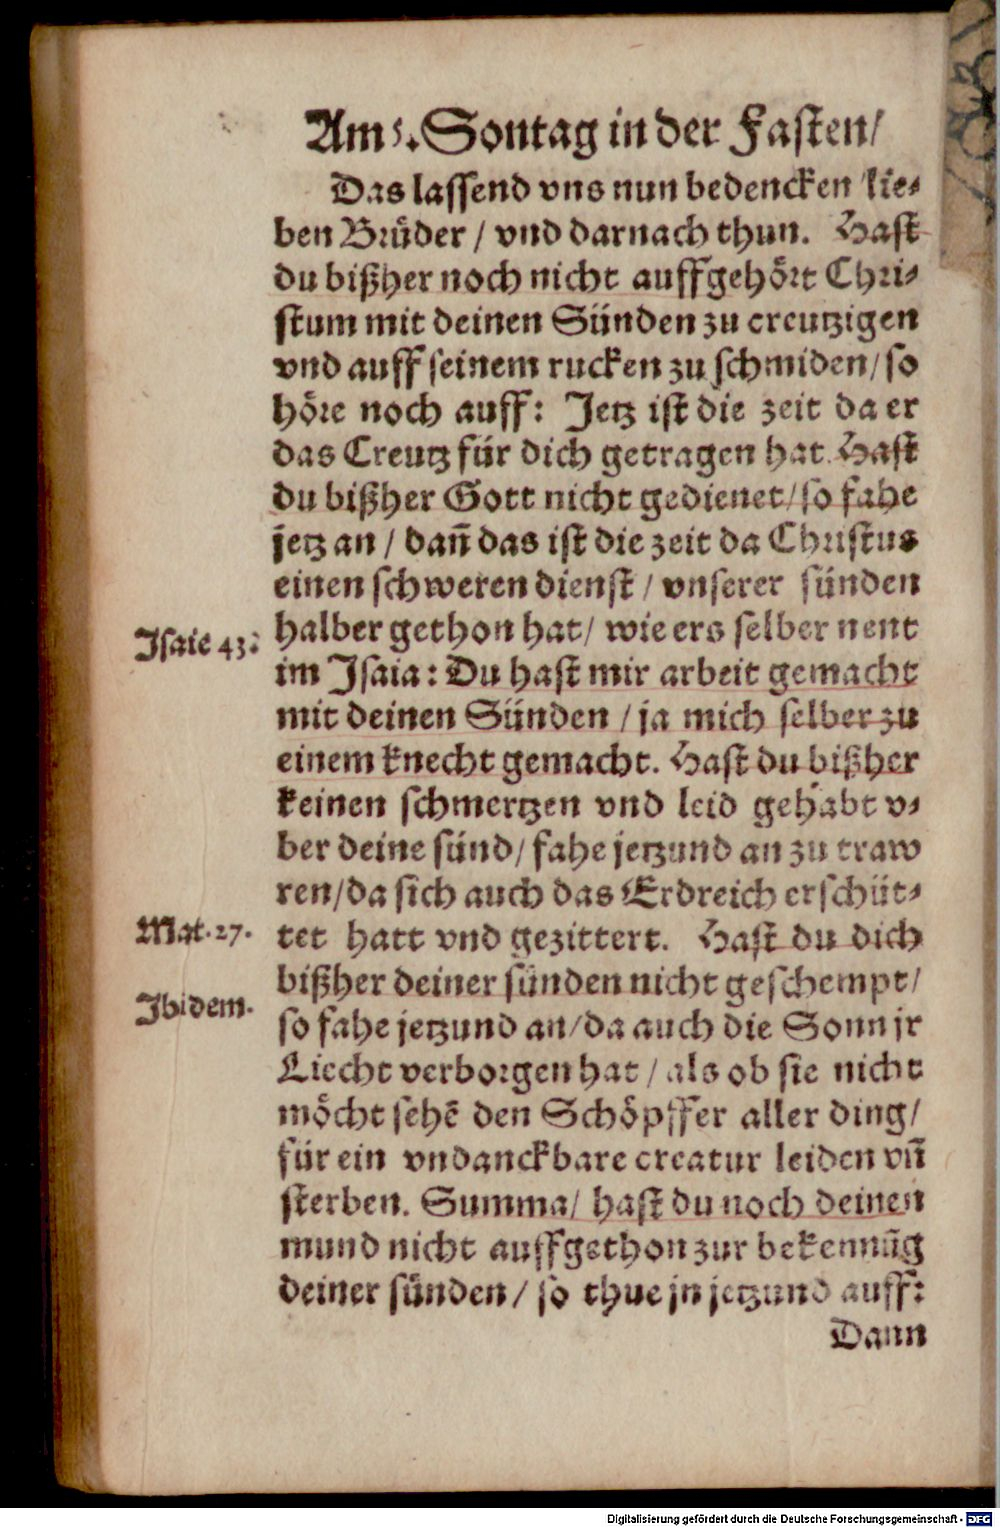 Am 5. Sontag in der Fasten/
Das lassend vns nun bedencken lie-
ben Brůder / vnd darnach thun. Hast
du bißher noch nicht auffgehört Chri-
stum mit deinen Sünden zu creutzigen
vnd auff seinem rucken zu schmiden/ so
höre noch auff: Jetz ist die zeit da er
das Creutz für dich getragen hat. Hast
du bißher Gott nicht gedienet/ so fahe
jetz an / dañ das ist die zeit da Christus
einen schweren dienst / vnserer sünden
Isaie 43. halber gethon hat/ wie ers selber nent
im Isaia: Du hast mir arbeit gemacht
mit deinen Sünden / ja mich selber zu
einem knecht gemacht. Hast du bißher
keinen schmertzen vnd leid gehabt v-
ber deine sünd/ fahe jetzund an zu traw
ren/ da sich auch das Erdreich erschüt-
Mat. 27. tet hatt vnd gezittert. Hast du dich
bißher deiner sünden nicht geschempt/
Ibidem. so fahe jetzund an/ da auch die Sonn jr
Liecht verborgen hat / als ob sie nicht
möcht sehē den Schöpffer aller ding/
für ein vndanckbare creatur leiden vñ
sterben. Summa/ hast du noch deinen
mund nicht auffgethon zur bekennūg
deiner sünden/ so thue jn jetzund auff:
Dann
Digitalisierung gefördert durch die Deutsche Forschungsgemeinschaft - DFG